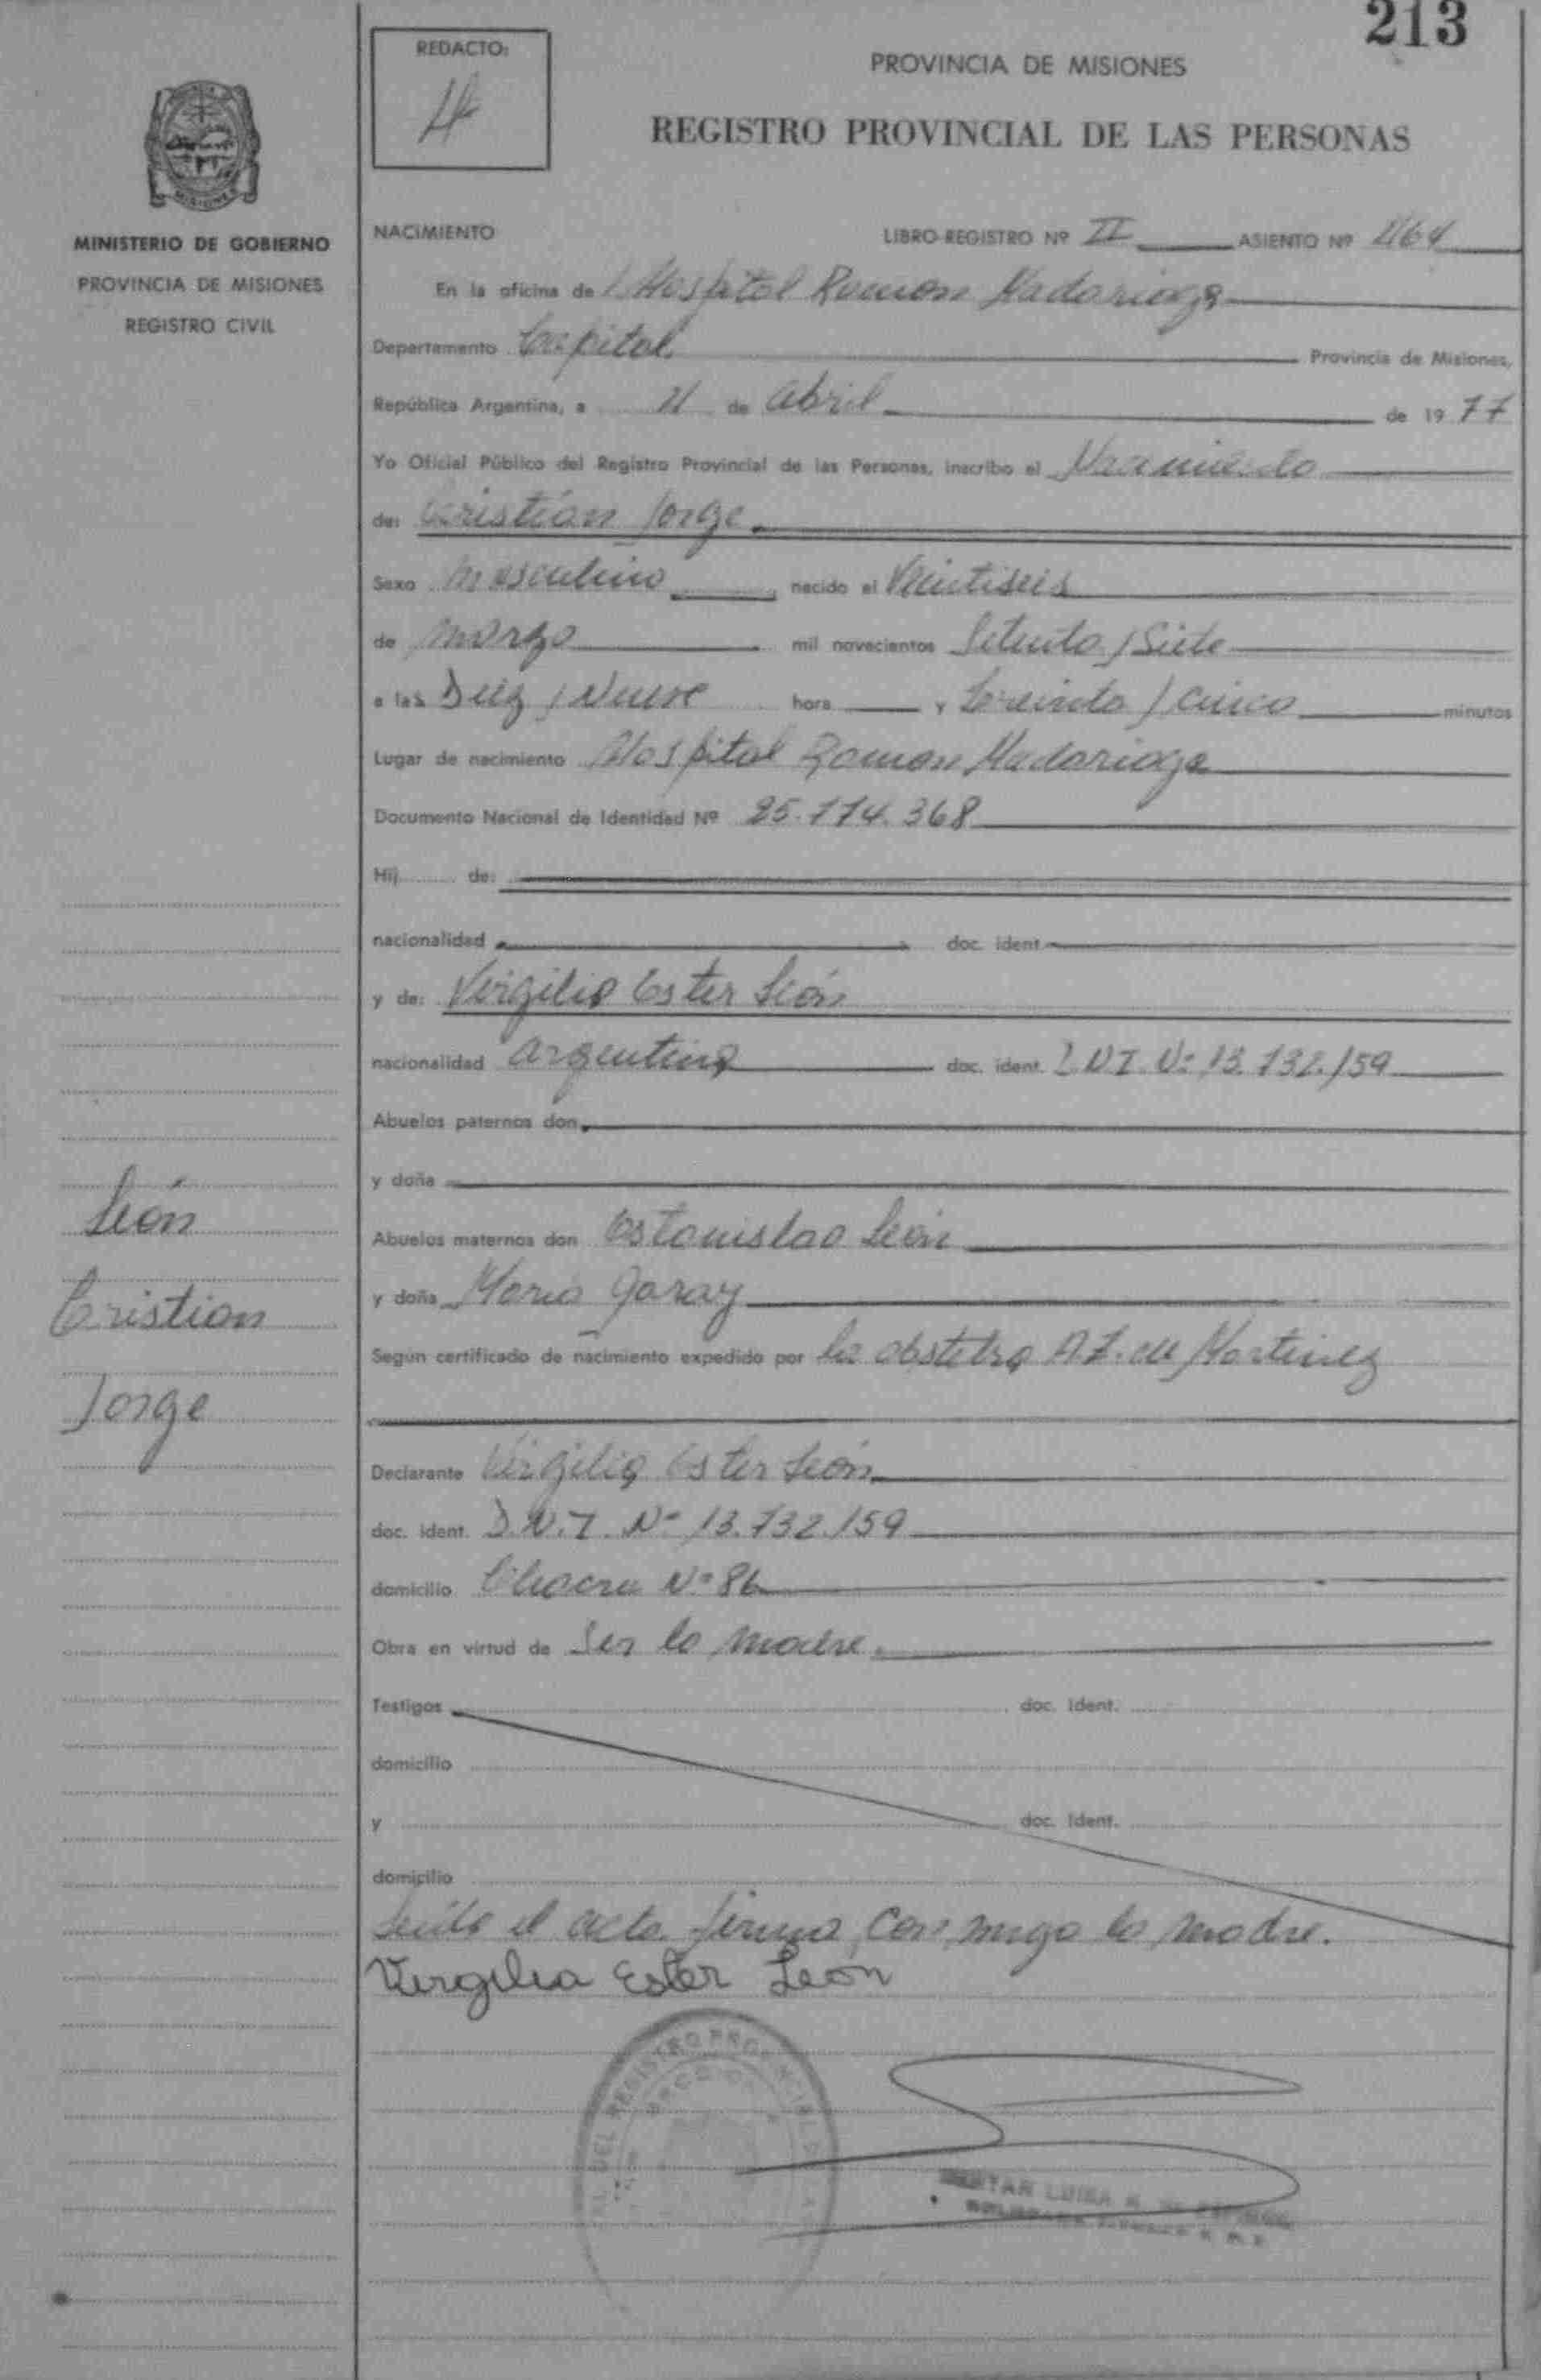 213
REDACTO:
PROVINCIA DE MISIONES
REGISTRO PROVINCIAL DE LAS PERSONAS
MINISTERIO DE GOBIERNO
PROVINCIA DE MISIONES
REGISTRO CIVIL
NACIMIENTO LIBRO-REGISTRO Nº II ASIENTO Nº
En la oficina de Hospital Ramon Madariaga
Departamento Capital Provincia de Misiones,
República Argentina, a de abril de 1977
Yo Oficial Público del Registro Provincial de las Personas, inscribo el Nacimiento
de: Cristián Jorge
Sexo masculino nacido el Veintiseis
de marzo mil novecientos Setenta y Siete
a las Diez y Nueve hora y Cincuenta y Cinco minutos
Lugar de nacimiento Hospital Ramon Madariaga
Documento Nacional de Identidad Nº 25.774.368
Hij de:
nacionalidad doc. ident.
y de: Virgilia Ester León
nacionalidad argentina doc. ident. D.N.I. Nº 13.732.159
Abuelos paternos don
y doña
León
Abuelos maternos don Estanislao León
Cristian
y doña Maria Garay
Según certificado de nacimiento expedido por la obstetra A.Z. de Martinez
Jorge
Declarante Virgilia Ester León
doc. ident. D.N.I. Nº 13.732.159
domicilio Chacra Nº 86
Obra en virtud de Ser la madre.
Testigos doc. ident.
domicilio
y doc. ident.
domicilio
Leída el acta firma conmigo la madre.
Virgilia Ester León
DEL REGISTRO PROVINCIAL DE LAS
LUISA